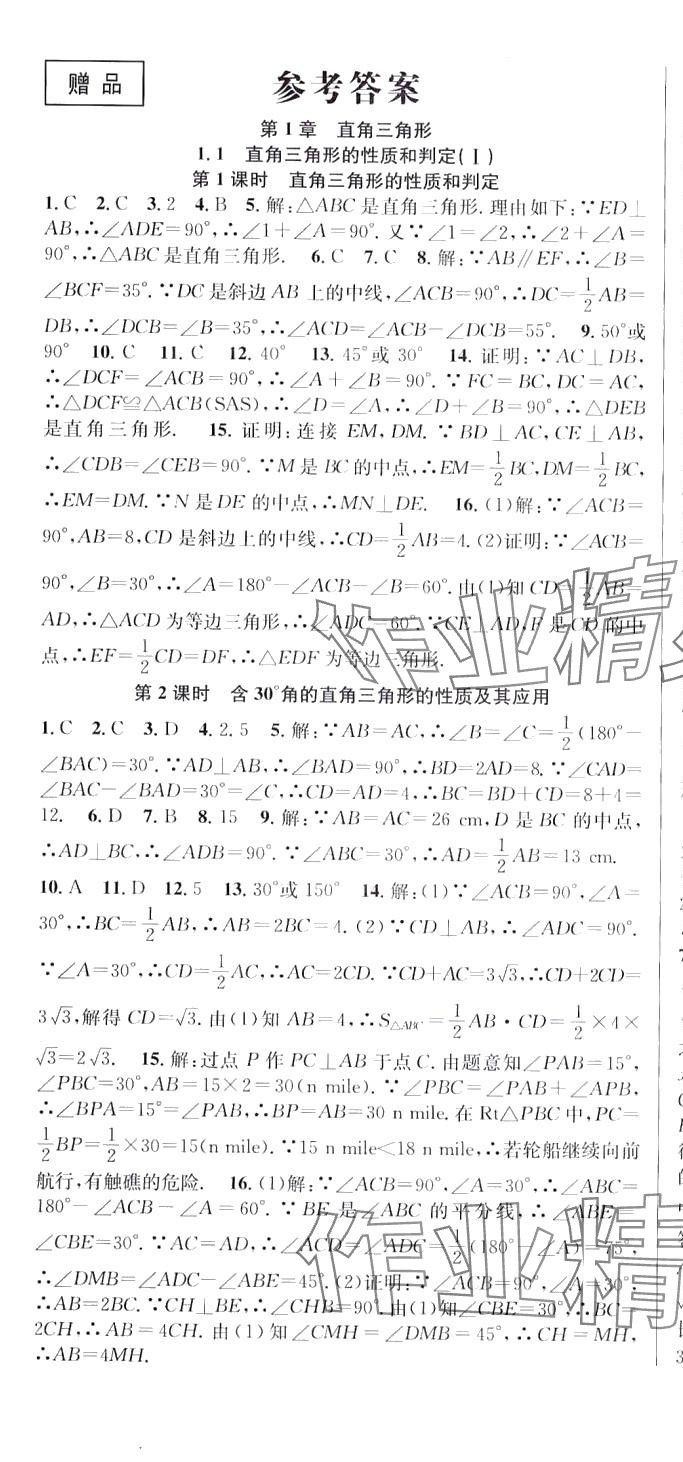 赠品
参考答案
第1章　直角三角形
1.1　直角三角形的性质和判定(Ⅰ)
第1课时　直角三角形的性质和判定
1.C　2.C　3.2　4.B　5.解:△ABC是直角三角形.理由如下:∵ED⊥
AB,∴∠ADE=90°,∴∠1+∠A=90°.又∵∠1=∠2,∴∠2+∠A=
90°,∴△ABC是直角三角形.　6.C　7.C　8.解:∵AB∥EF,∴∠B=
∠BCF=35°.∵DC是斜边AB上的中线,∠ACB=90°,∴DC=1/2AB=
DB,∴∠DCB=∠B=35°,∴∠ACD=∠ACB-∠DCB=55°.　9.50°或
90°　10.C　11.C　12.40°　13.45°或30°　14.证明:∵AC⊥DB,
∴∠DCF=∠ACB=90°,∴∠A+∠B=90°.∵FC=BC,DC=AC,
∴△DCF≌△ACB(SAS),∴∠D=∠A,∴∠D+∠B=90°,∴△DEB
是直角三角形.　15.证明:连接EM,DM.∵BD⊥AC,CE⊥AB,
∴∠CDB=∠CEB=90°.∵M是BC的中点,∴EM=1/2BC,DM=1/2BC,
∴EM=DM.∵N是DE的中点,∴MN⊥DE.　16.(1)解:∵∠ACB=
90°,AB=8,CD是斜边上的中线,∴CD=1/2AB=4.(2)证明:∵∠ACB=
90°,∠B=30°,∴∠A=180°-∠ACB-∠B=60°.由(1)知CD=1/2AB=
AD,∴△ACD为等边三角形,∴∠ADC=60°.∵CE⊥AD,F是CD的中
点,∴EF=1/2CD=DF,∴△EDF为等边三角形.
第2课时　含30°角的直角三角形的性质及其应用
1.C　2.C　3.D　4.2.5　5.解:∵AB=AC,∴∠B=∠C=1/2(180°-
∠BAC)=30°.∵AD⊥AB,∴∠BAD=90°,∴BD=2AD=8.∵∠CAD=
∠BAC-∠BAD=30°=∠C,∴CD=AD=4,∴BC=BD+CD=8+4=
12.　6.D　7.B　8.15　9.解:∵AB=AC=26 cm,D是BC的中点,
∴AD⊥BC,∴∠ADB=90°.∵∠B=30°,∴AD=1/2AB=13 cm.
10.A　11.D　12.5　13.30°或150°　14.解:(1)∵∠ACB=90°,∠A=
30°,∴BC=1/2AB,∴AB=2BC=4.(2)∵CD⊥AB,∴∠ADC=90°.
∵∠A=30°,∴CD=1/2AC,∴AC=2CD.∵CD+AC=3√3,∴CD+2CD=
3√3,解得CD=√3.由(1)知AB=4,∴S△ABC=1/2AB·CD=1/2×4×
√3=2√3.　15.解:过点P作PC⊥AB于点C.由题意知∠PAB=15°,
∠PBC=30°,AB=15×2=30(n mile).∵∠PBC=∠PAB+∠APB,
∴∠BPA=15°=∠PAB,∴BP=AB=30 n mile.在Rt△PBC中,PC=
1/2BP=1/2×30=15(n mile).∵15 n mile<18 n mile,∴若轮船继续向前
航行,有触礁的危险.　16.(1)解:∵∠ACB=90°,∠A=30°,∴∠ABC=
180°-∠ACB-∠A=60°.∵BE是∠ABC的平分线,∴∠ABE=
∠CBE=30°.∵AC=AD,∴∠ACD=∠ADC=1/2(180°-∠A)=75°,
∴∠DMB=∠ADC-∠ABE=45°.(2)证明:∵∠ACB=90°,∠A=30°,
∴AB=2BC.∵CH⊥BE,∴∠CHB=90°.由(1)知∠CBE=30°,∴BC=
2CH,∴AB=4CH.由(1)知∠CMH=∠DMB=45°,∴CH=MH,
∴AB=4MH.
作业精灵
作业精灵